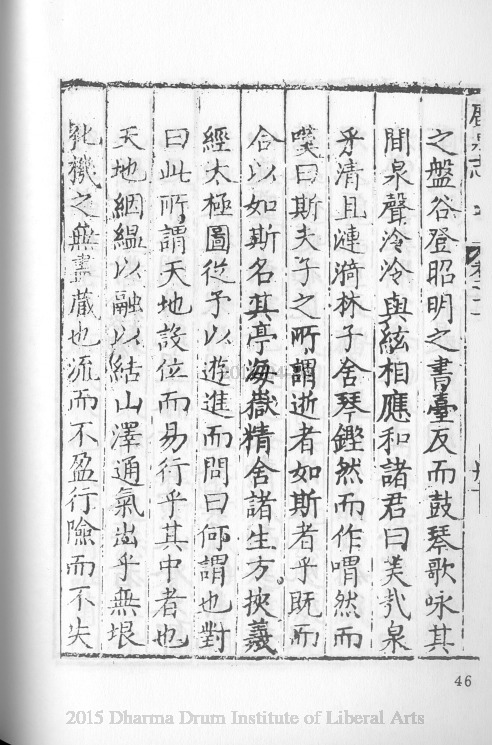 之盤谷登昭明之書臺反而鼓琴歌咏其
間泉聲泠泠與絃相應和諸君曰美哉泉
乎清且漣漪林子舍琴鏗然而作喟然而
嘆曰斯夫子之所謂逝者如斯者乎既而
合以如斯名其亭海嶽精舍諸生方挾羲
經太極圖從予以遊進而問曰何謂也對
曰此所謂天地設位而易行乎其中者也
天地絪縕以融以結山澤通氣出乎無垠
化機之無盡藏也流而不盈行險而不失
46
2015 Dharma Drum Institute of Liberal Arts